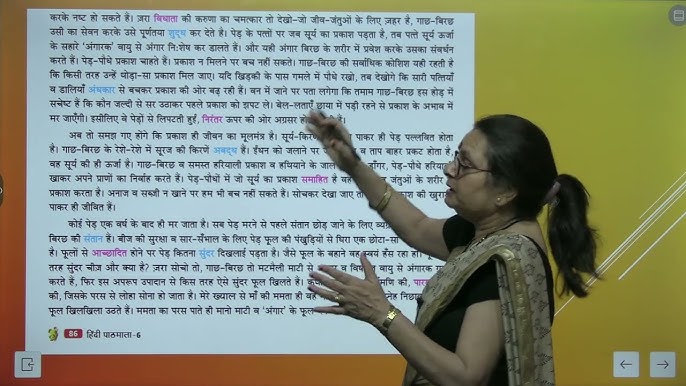 करके नष्ट हो सकते हैं। ज़रा विधाता की करुणा का चमत्कार तो देखो-जो जीव-जंतुओं के लिए ज़हर है, गाछ-बिरछ
उसी का सेवन करके उसे पूर्णतया शुद्ध कर देते हैं। पेड़ के पत्तों पर जब सूर्य का प्रकाश पड़ता है, तब पत्ते सूर्य ऊर्जा
के सहारे 'अंगारक' वायु से अंगार निःशेष कर डालते हैं। और यही अंगार बिरछ के शरीर में प्रवेश करके उसका संवर्धन
करते हैं। पेड़-पौधे प्रकाश चाहते हैं। प्रकाश न मिलने पर बच नहीं सकते। गाछ-बिरछ की सर्वाधिक कोशिश यही रहती है
कि किसी तरह उन्हें थोड़ा-सा प्रकाश मिल जाए। यदि खिड़की के पास गमले में पौधे रखो, तब देखोगे कि सारी पत्तियाँ
व डालियाँ अंधकार से बचकर प्रकाश की ओर बढ़ रही हैं। वन में जाने पर पता लगेगा कि तमाम गाछ-बिरछ इस होड़ में
सचेष्ट हैं कि कौन जल्दी से सर उठाकर पहले प्रकाश को झपट ले। बेल-लताएँ छाया में पड़ी रहने से प्रकाश के अभाव में
मर जाएँगी। इसीलिए वे पेड़ों से लिपटती हुई, निरंतर ऊपर की ओर अग्रसर हैं।
अब तो समझ गए होंगे कि प्रकाश ही जीवन का मूलमंत्र है। सूर्य-किरण पाकर ही पेड़ पल्लवित होता
है। गाछ-बिरछ के रेशे-रेशे में सूरज की किरणें आबद्ध हैं। ईंधन को जलाने पर व ताप बाहर प्रकट होता है,
वह सूर्य की ही ऊर्जा है। गाछ-बिरछ व समस्त हरियाली प्रकाश व हथियाने के जाल पेड़-पौधे
खाकर अपने प्राणों का निर्वाह करते हैं। पेड़-पौधों में जो सूर्य का प्रकाश समाहित है वह जंतुओं के शरीर
प्रकाश करता है। अनाज व सब्जी न खाने पर हम भी बच नहीं सकते हैं। सोचकर देखा जाए तो प्रकाश की खुराक
पाकर ही जीवित हैं।
कोई पेड़ एक वर्ष के बाद ही मर जाता है। सब पेड़ मरने से पहले संतान छोड़ जाने के लिए व्यग्र
बिरछ की संतान हैं। बीज की सुरक्षा व सार-सँभाल के लिए पेड़ फूल की पंखुड़ियों से घिरा एक छोटा-सा
है। फूलों से आच्छादित होने पर पेड़ कितना सुंदर दिखलाई पड़ता है। जैसे फूल के बहाने वह स्वयं हँस रहा हो।
तरह सुंदर चीज़ और क्या है? ज़रा सोचो तो, गाछ-बिरछ तो मटमैली माटी से व वायु से अंगारक
करते हैं, फिर इस अपरूप उपादान से किस तरह ऐसे सुंदर फूल खिलते हैं। मणि की, पारस
की, जिसके परस से लोहा सोना हो जाता है। मेरे ख्याल से माँ की ममता ही वह
फूल खिलखिला उठते हैं। ममता का परस पाते ही मानो माटी व 'अंगार' के फूल
86 हिंदी पाठमाला-6